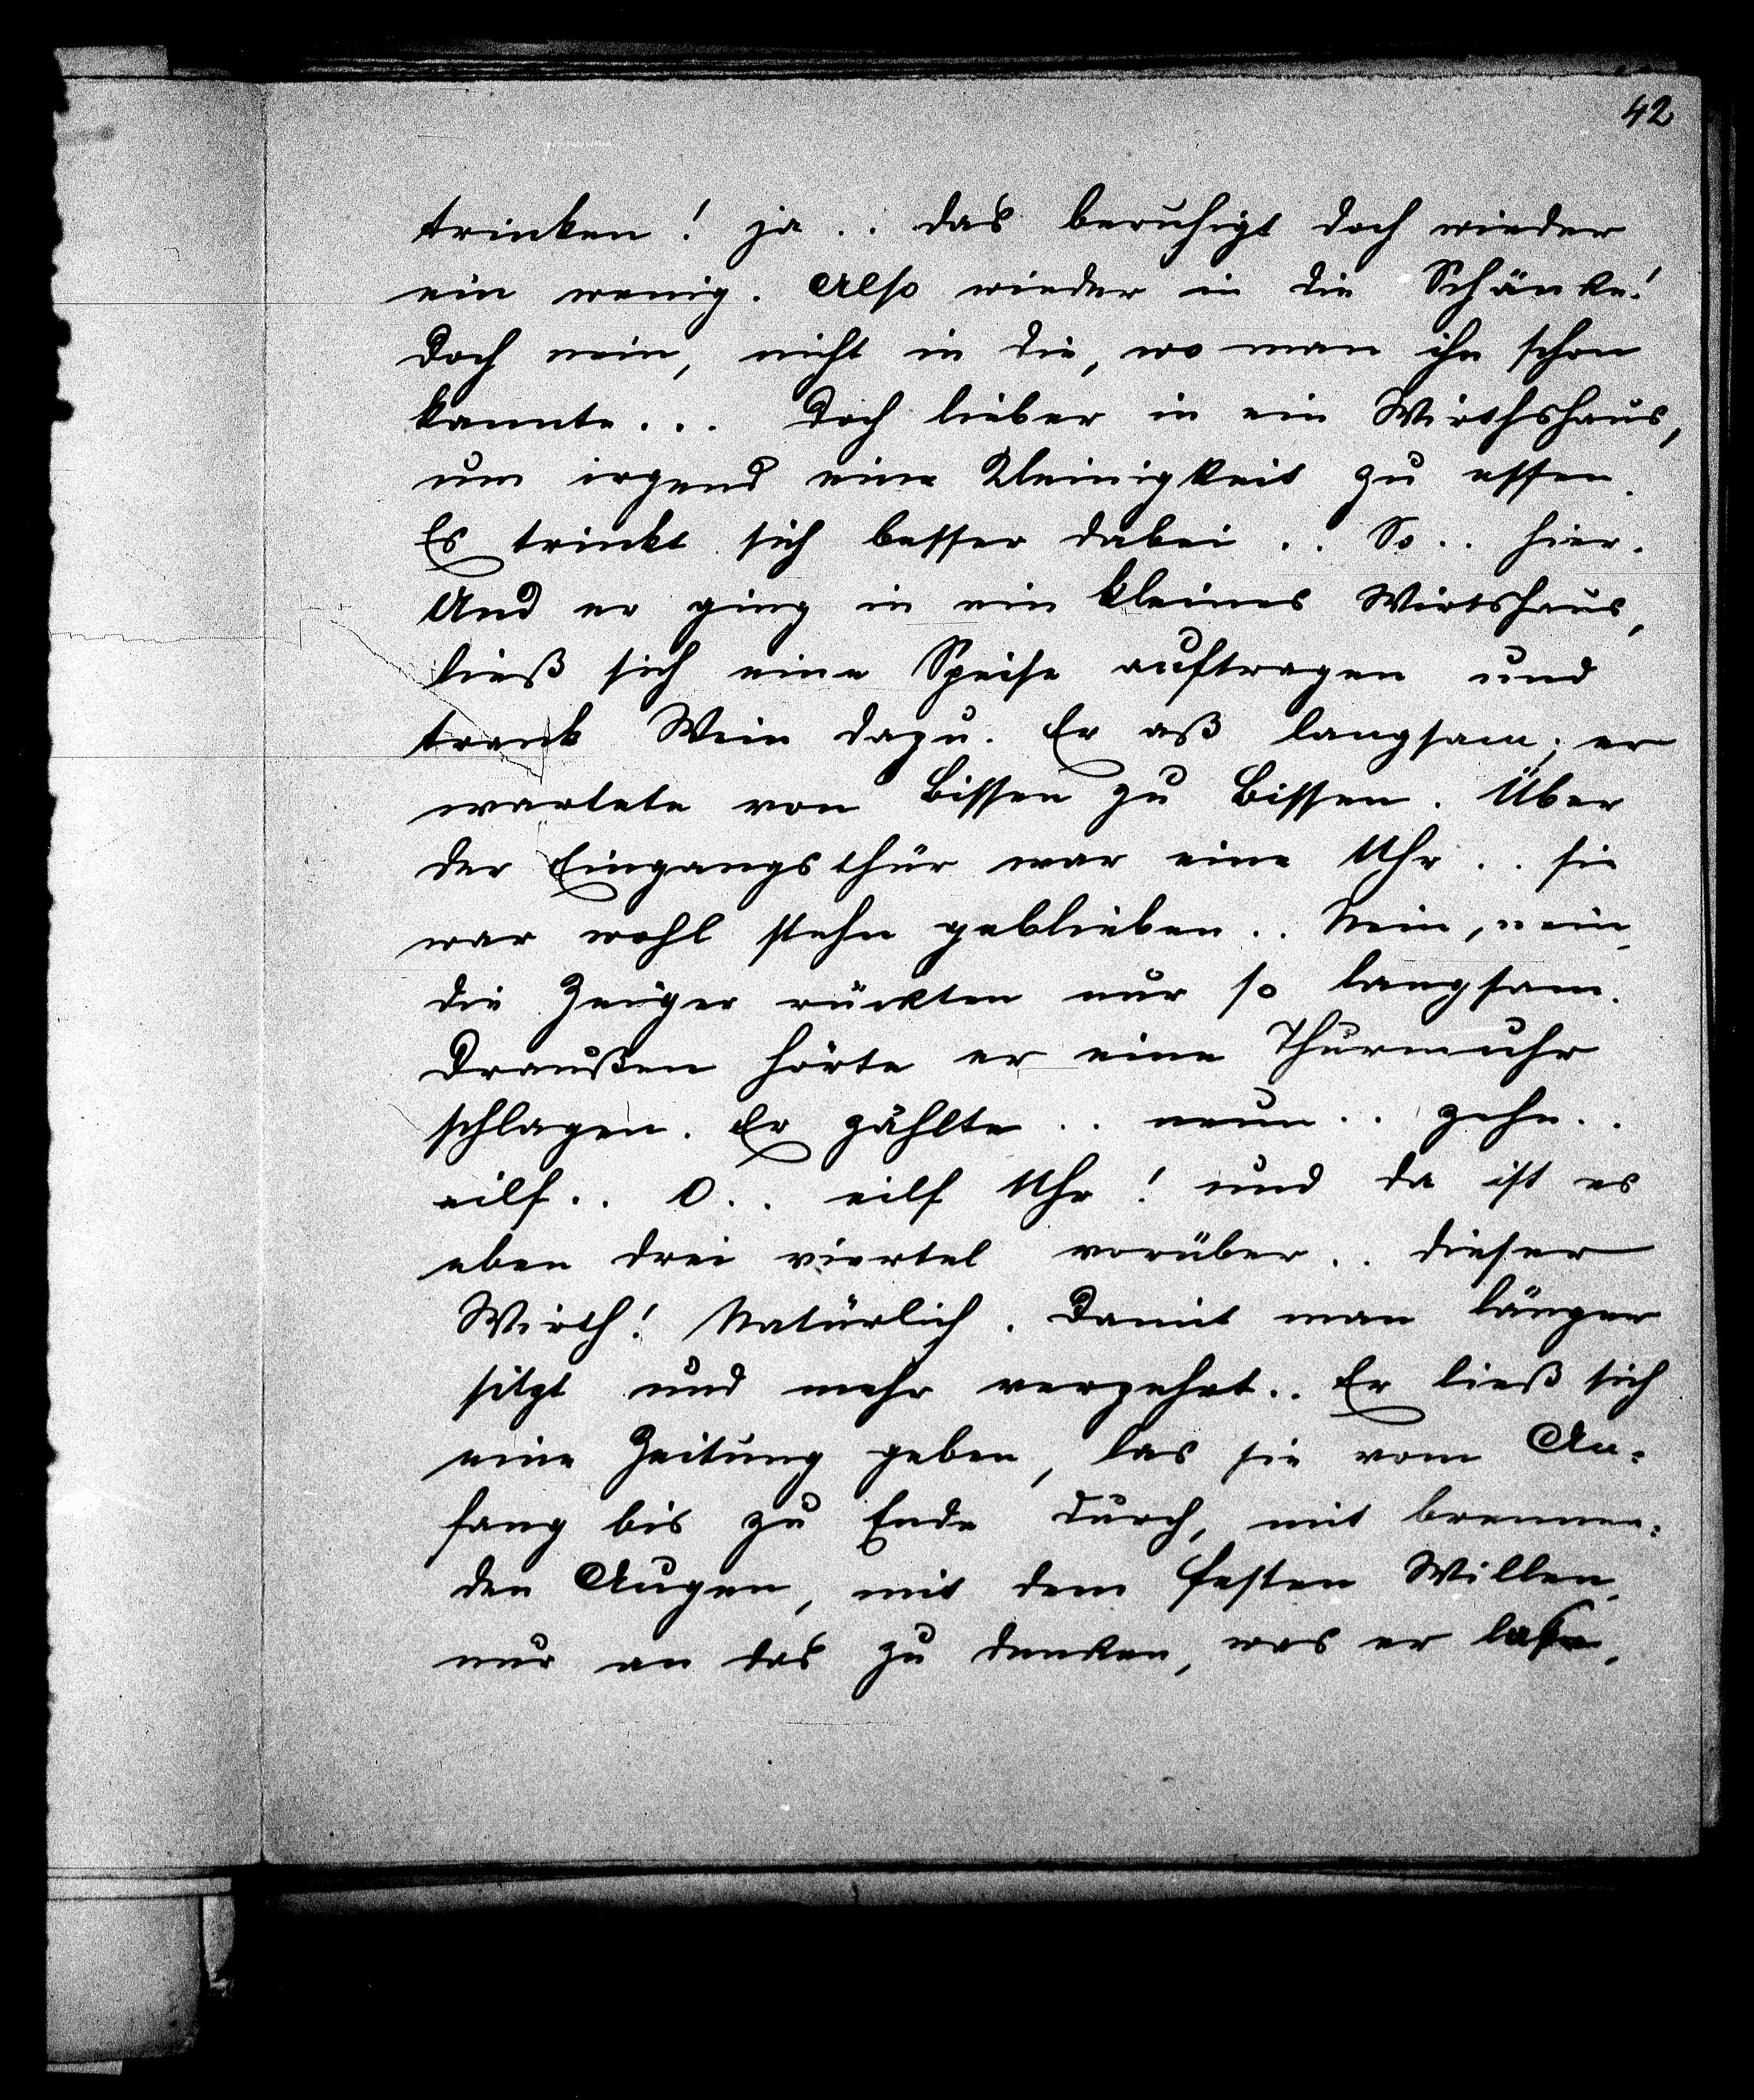 42
trinken! ja .. das beruhigt doch wieder
ein wenig. Also wieder in die Schänke!
Doch nein, nicht in die, wo man ihn schon
kannte... Doch lieber in ein Wirthshaus,
um irgend eine Kleinigkeit zu essen.
Es trinkt sich besser dabei .. So .. hier.
Und er ging in ein kleines Wirtshaus,
ließ sich eine Speise auftragen und
trank Wein dazu. Er aß langsam; er
wartete von Bissen zu Bissen. Über
der Eingangsthür war eine Uhr .. sie
war wohl stehn geblieben .. Nein, nein,
die Zeiger rückten nur so langsam.
Draußen hörte er eine Thurmuhr
schlagen. Er zählte .. neun .. zehn ..
eilf .. O .. eilf Uhr! und da ist es
eben drei viertel vorüber .. dieser
Wirth! Natürlich. Damit man länger
sitzt und mehr verzehrt .. Er ließ sich
eine Zeitung geben, las sie vom An-
fang bis zu Ende durch, mit brennen-
den Augen, mit dem festen Willen,
nur an das zu denken, was er las.